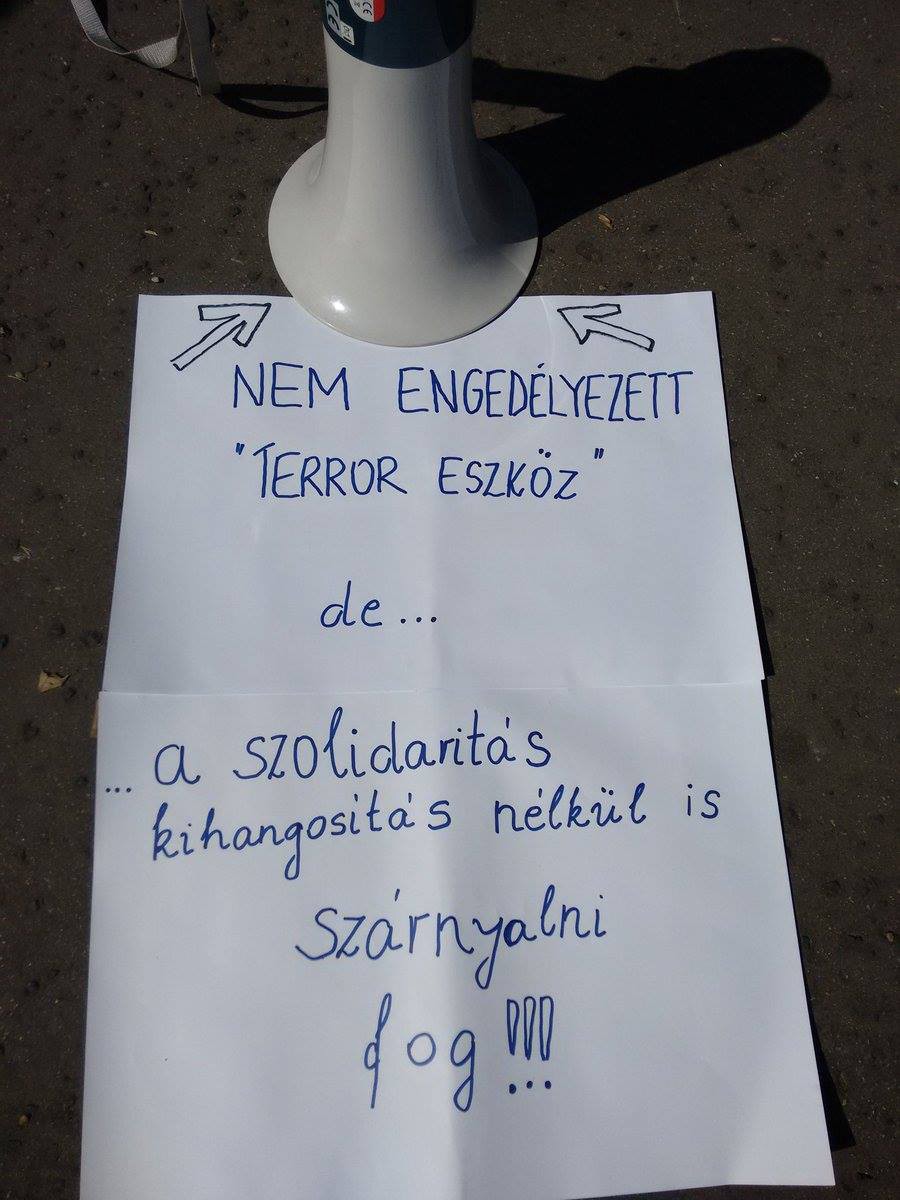 NEM ENGEDÉLYEZETT
"TERROR ESZKÖZ"
de...
... a szolidaritás
kihangositás nélkül is
szárnyalni
fog!!!